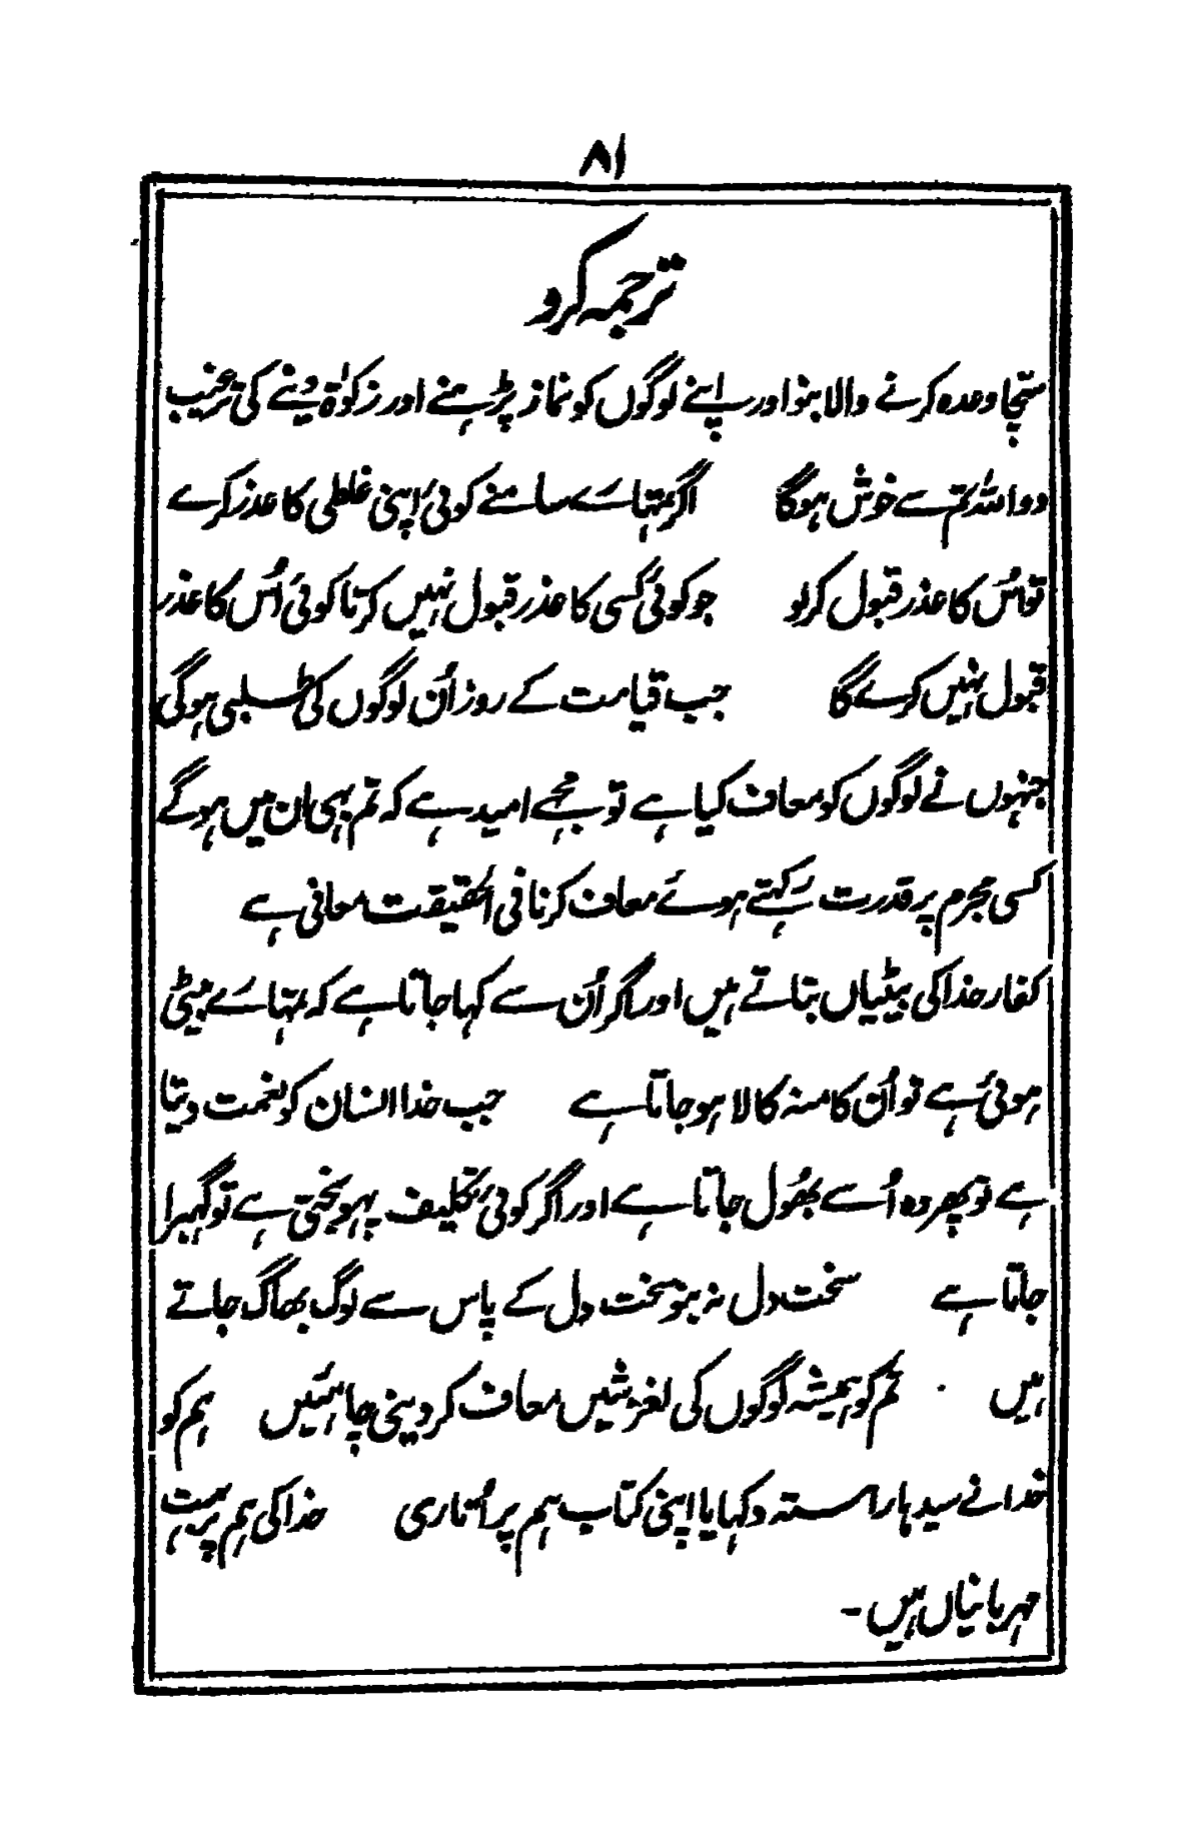 ۸۱
ترجمہ کرو
سچّا وعدہ کرنے والا بنو اور اپنے لوگوں کو نماز پڑہنے اور زکوٰۃ دینے کی ترغیب
دو اللہ تم سے خوش ہوگا اگر تمہارے سامنے کوئی اپنی غلطی کا عذر کرے
تو اُس کا عذر قبول کر لو جو کوئی کسی کا عذر قبول نہیں کرتا کوئی اُس کا عذر
قبول نہیں کرے گا جب قیامت کے روز اُن لوگوں کی طلبی ہوگی
جنہوں نے لوگوں کو معاف کیا ہے تو مجھے امید ہے کہ تم بہی ان میں ہوگے
کسی مجرم پر قدرت رکہتے ہوئے معاف کرنا فی الحقیقت معافی ہے
کفار خدا کی بیٹیاں بتاتے ہیں اور اگر اُن سے کہا جاتا ہے کہ تمہارے بیٹی
ہوئی ہے تو اُن کا منہ کالا ہو جاتا ہے جب خدا انسان کو نعمت دیتا
ہے تو پھر وہ اُسے بھُول جاتا ہے اور اگر کوئی تکلیف پہونچتی ہے تو گہبرا
جاتا ہے سخت دل نہ بنو سخت دل کے پاس سے لوگ بھاگ جاتے
ہیں تم کو ہمیشہ لوگوں کی لغزشیں معاف کر دینی چاہئیں ہم کو
خدا نے سیدہا راستہ دکہایا اپنی کتاب ہم پر اُتاری خدا کی ہم پر بہت
مہربانیاں ہیں ۔